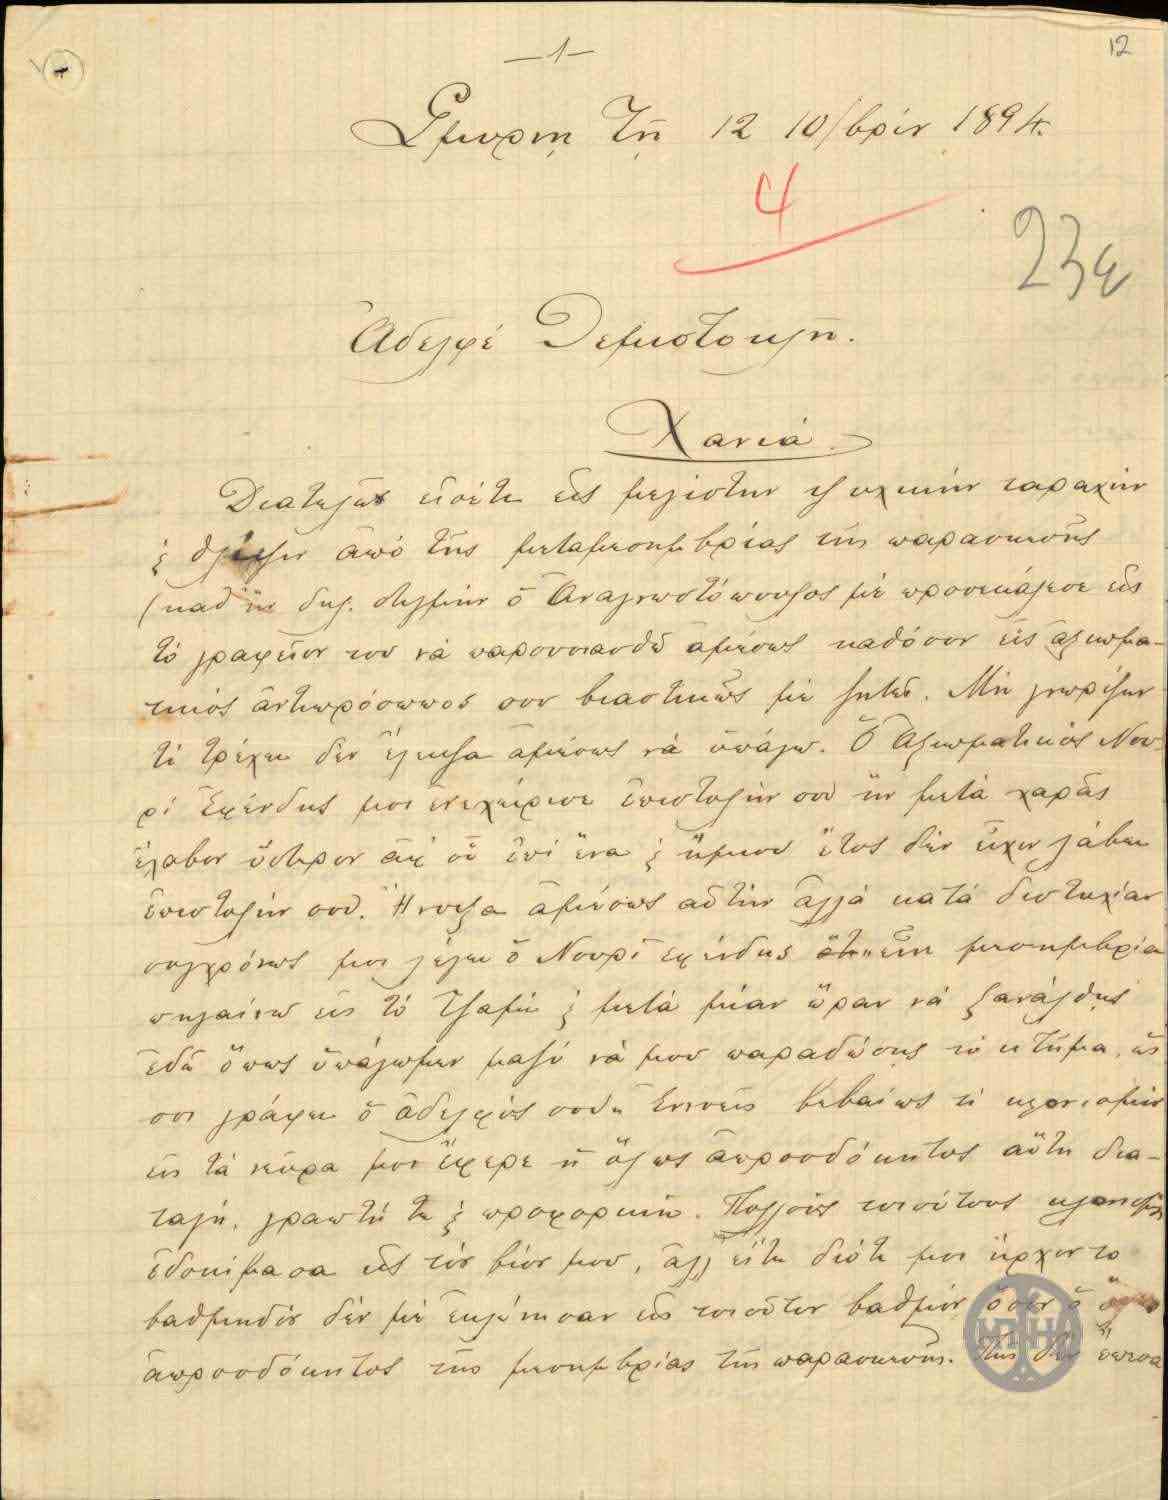 —1—
12
Σμύρνη τῇ 12 10/βρίν 1894.
4
23ε
Ἀδελφέ Θεμιστοκλῆ.
Χανιά.
Διατελῶν εἰσέτι εἰς μεγίστην ψυχικήν ταραχήν
ϗ θλίψιν ἀπό τῆς μεταμεσημβρίας τῆς παρασκευῆς
(καθ' ἥν δηλ. στιγμήν ὁ Ἀναγνωστόπουλος μέ προσεκάλεσε εἰς
τό γραφεῖον του νά παρουσιασθῶ ἀμέσως καθόσον εἷς ἀξιωμα-
τικός ἀντιπρόσωπος σου βιαστικῶς μέ ζητεῖ. Μή γνωρίζων
τί τρέχει δέν ἔλειψα ἀμέσως νά ὑπάγω. Ὁ Ἀξιωματικός Νου-
ρί Ἐφένδης μοι ἐνεχείρισε ἐπιστολήν σου ἥν μετά χαρᾶς
ἔλαβον ὕστερον ἀφ' οὗ ἐπί ἕνα ϗ ἥμισυ ἔτος δέν εἶχον λάβει
ἐπιστολήν σου. Ἤνοιξα ἀμέσως αὐτήν ἀλλά κατά δυστυχίαν
συγχρόνως μοι λέγει ὁ Νουρί ἐφένδης εἶνε μεσημβρία
πηγαίνω εἰς τό τζαμί ϗ μετά μίαν ὥραν νά ξανάλθῃς
ἐδῶ ὅπως ὑπάγωμεν μαζύ νά μου παραδώσῃς τό κτῆμα, ὡς
σοι γράφει ὁ ἀδελφός σου. Ἐννοεῖς βεβαίως τί κλονισμόν
εἰς τά νεῦρα μου ἔφερε ἡ ὅλως ἀπροσδόκητος αὕτη δια-
ταγή, γραπτή τε ϗ προφορική. Πολλούς τοιούτους κλονισμούς
ἐδοκίμασα εἰς τόν βίον μου, ἀλλ' εἴτε διότι μοι ἤρχοντο
βαθμηδόν δέν μέ ἐκλόνησαν εἰς τοιοῦτον βαθμόν ὅσον ὁ
ἀπροσδόκητος τῆς μεσημβρίας τῆς παρασκευῆς. Πῶς δέν ἔπεσα